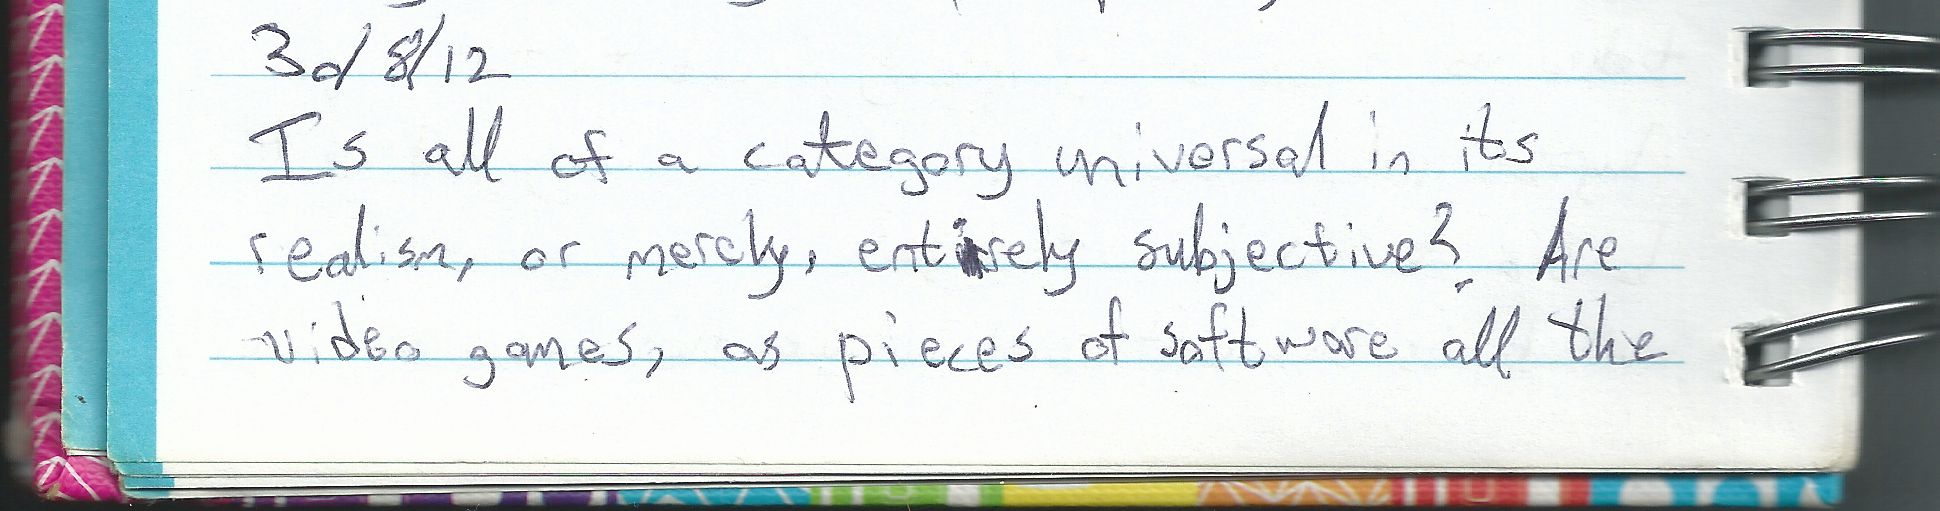 30/8/12
Is all of a category universal in its
realism, or merely, entirely subjective? Are
video games, as pieces of software all the